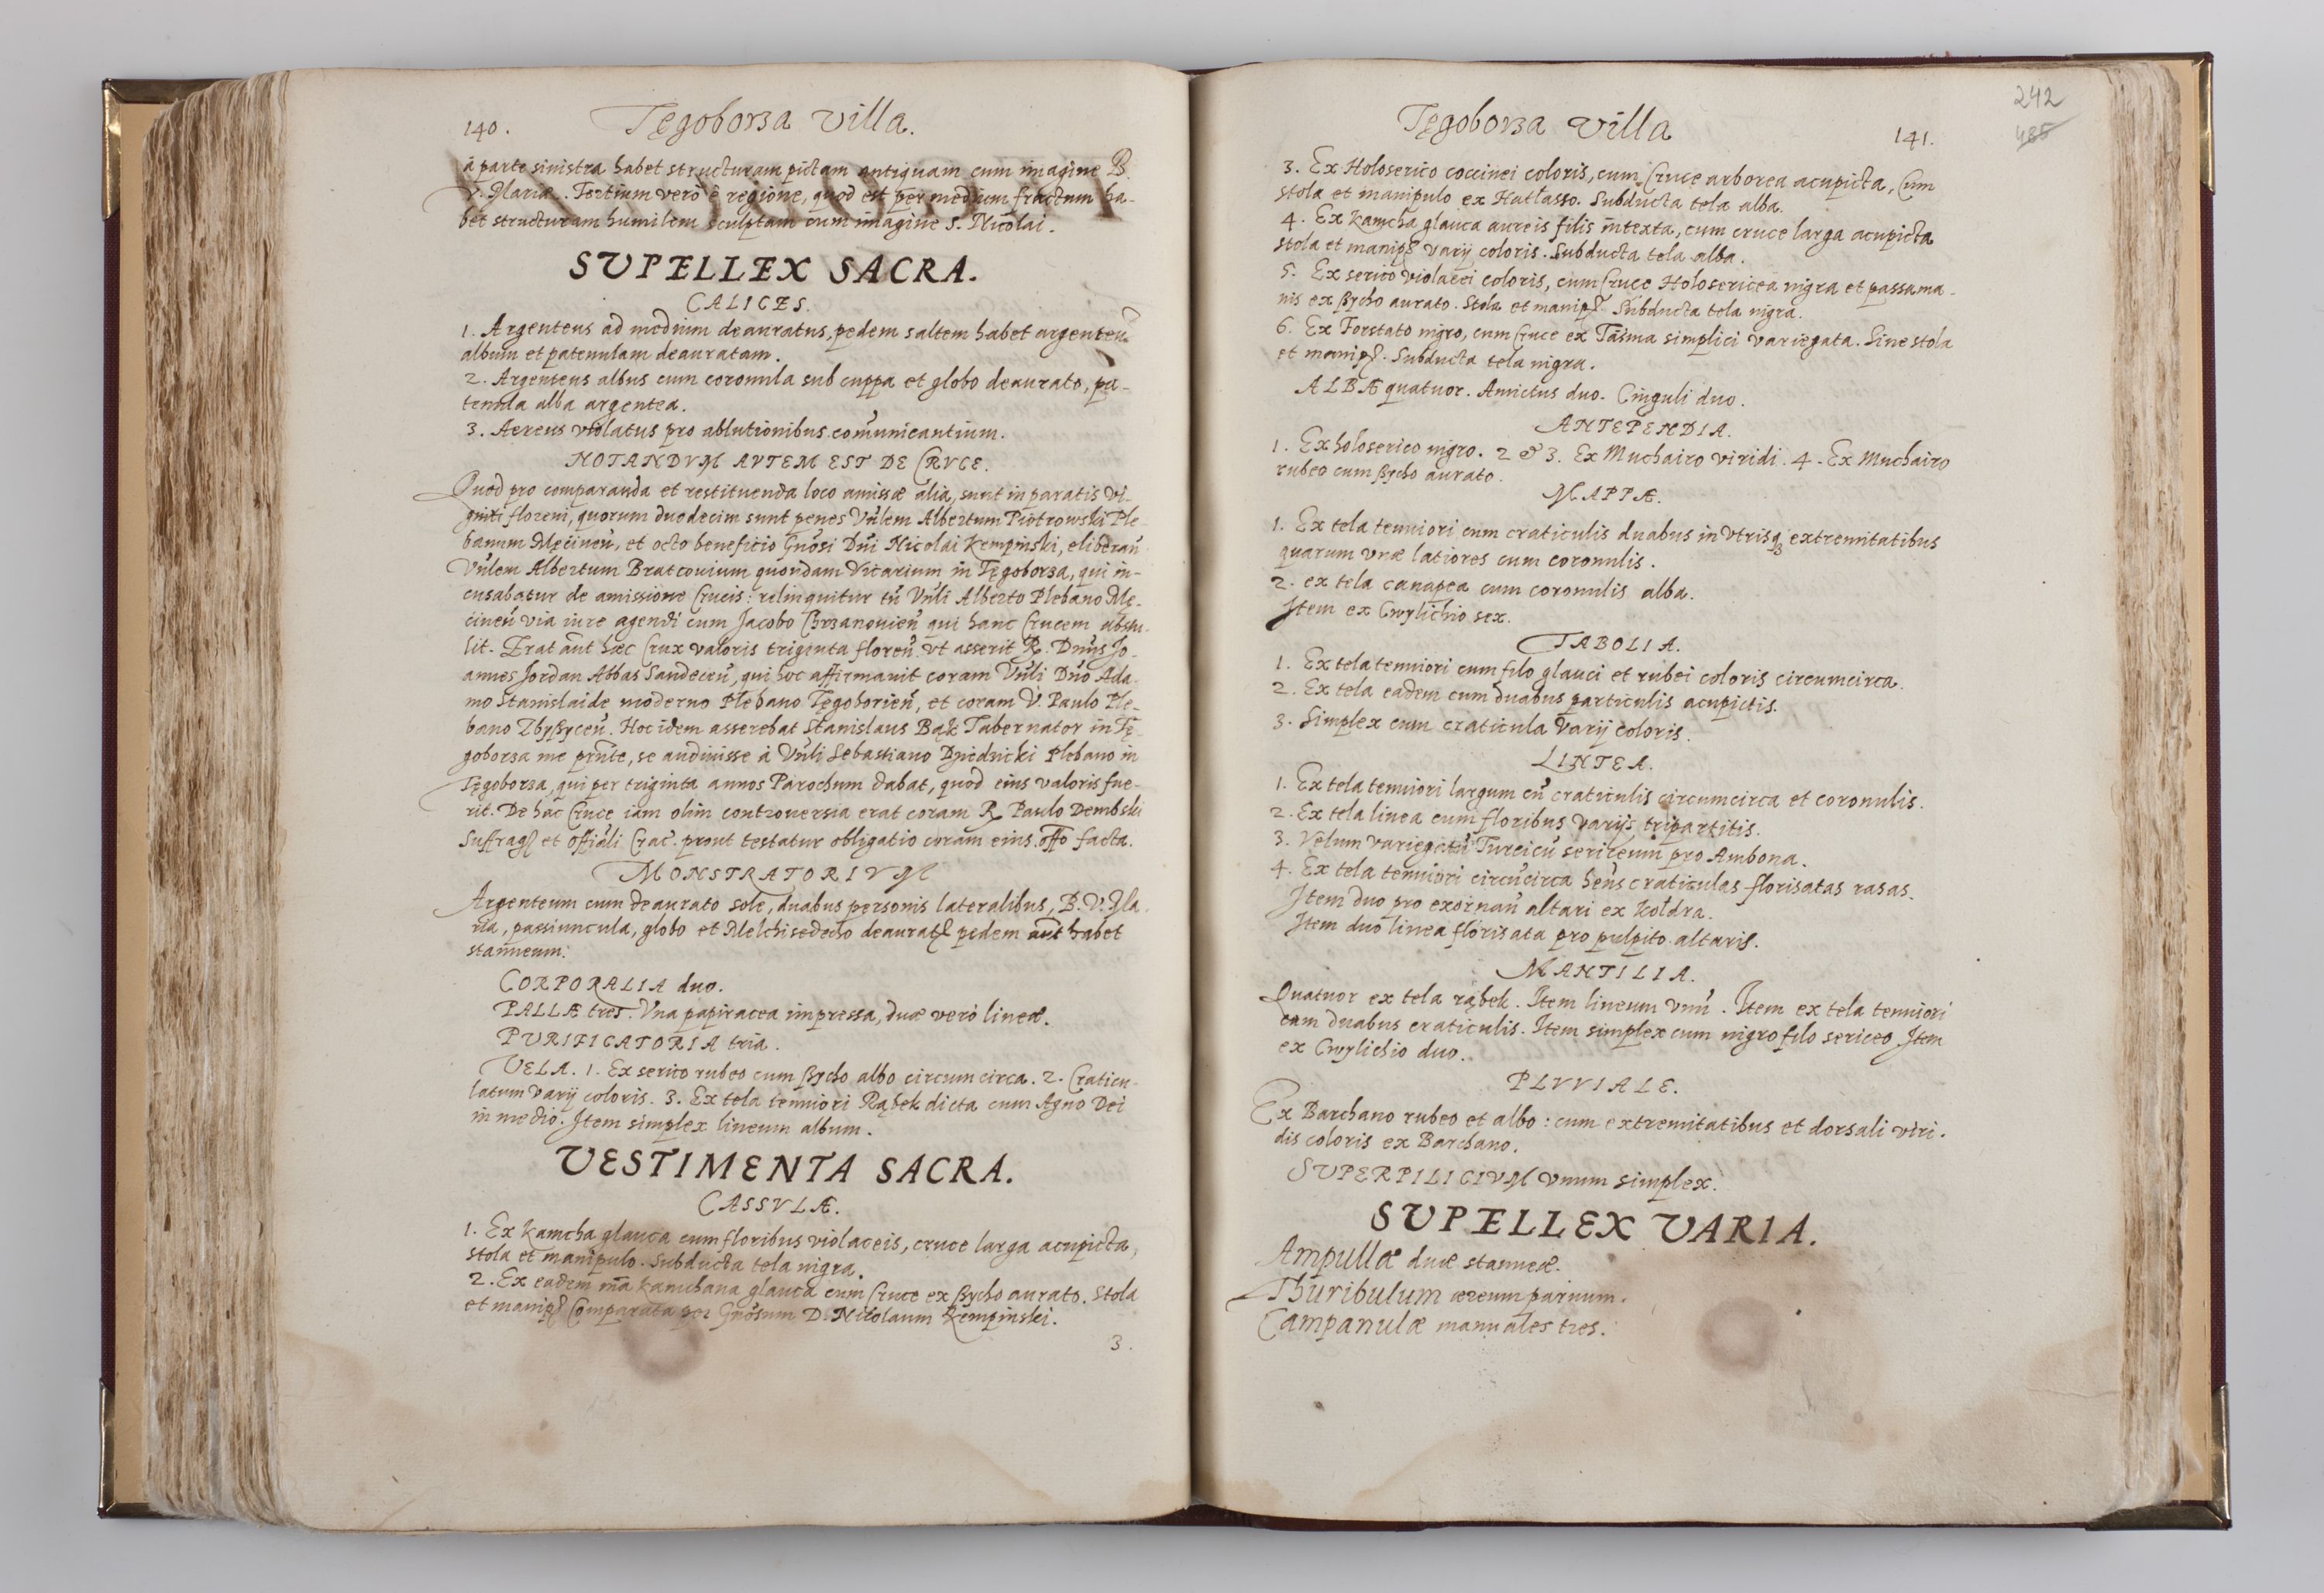 140.
Tęgoborza Villa.
à parte sinistra habet structuram pictam antiquam cum imagine B.
V. Mariæ. Tertium verò è regione, quod est per medium fractum ha-
bet structuram humilem sculptam cum imagine S. Nicolai.
SUPELLEX SACRA.
CALICES.
1. Argenteus ad medium deauratus, pedem saltem habet argenteū
album et patenulam deauratam.
2. Argenteus albus cum coronula sub cuppa et globo deaurato, pa-
tenula alba argentea.
3. Aereus violatus pro ablutionibus com̄unicantium.
NOTANDVM AVTEM EST DE CRVCE.
Quod pro comparanda et restituenda loco amissæ alia, sunt in paratis vi-
ginti floreni, quorum duodecim sunt penes Vn̄lem Albertum Piotrowski Ple-
banum Męcineū, et octo beneficio Gnōsi Dn̄i Nicolai Kempinski, eliberaū
Vn̄lem Albertum Bratcouium quondam Vicarium in Tęgoborza, qui in-
cusabatur de amissione Crucis: relinquitur tn̄ Vn̄li Alberto Plebano Mę-
cineū via iure agendi cum Jacobo Chrzanouieū qui hanc Crucem abstu-
lit. Erat aūt hæc Crux valoris triginta floreū. vt asserit R. Dn̄us Jo-
annes Jordan Abbas Sandeceū, qui hoc affirmauit coram Vn̄li Dn̄o Ada-
mo Stanislaide moderno Plebano Tęgoborieū, et coram V. Paulo Ple-
bano Zbyßyceū. Hoc idem asserebat Stanislaus Bąk Tabernator in Tę-
goborza me pn̄te, se audiuisse à Vn̄li Sebastiano Dziednicki Plebano in
Tęgoborza, qui per triginta annos Parochum dabat, quod eius valoris fue-
rit. De hac Cruce iam olim controuersia erat coram R. Paulo Dembski
Suffrag. et Offiāli Crac. prout testatur obligatio coram eius offo facta.
MONSTRATORIVM
Argenteum cum deaurato sole, duabus personis lateralibus, B. V. Ma-
ria, passiuncula, globo et Melchisedecho deaurat. pedem aūt habet
stanneum.
CORPORALIA duo.
PALLÆ tres. Vna papiracea impressa, duæ verò lineæ.
PURIFICATORIA tria.
VELA. 1. Ex serico rubeo cum ßycho albo circumcirca. 2. Craticu-
latum varij coloris. 3. Ex tela tenuiori Rąbek dicta cum Agno Dei
in medio. Item simplex lineum album.
VESTIMENTA SACRA.
CASSVLÆ.
1. Ex Kamcha glauca cum floribus violaceis, cruce larga acupicta,
stola et manipulo. Subducta tela nigra.
2. Ex eadem ma̅ Kamchana glauca cum Cruce ex ßycho aurato. Stola
et manip. Comparata per Gnōsum D. Nicolaum Kempinski.
3.
242
485
Tęgoborza Villa
141.
3. Ex Holoserico coccinei coloris, cum Cruce arborea acupicta, Cum
stola et manipulo ex Hatłasso. Subducta tela alba.
4. Ex Kamcha glauca aureis filis intexta, cum cruce larga acupicta
stola et manip. varij coloris. Subducta tela alba.
5. Ex serico violacei coloris, cum Cruce Holosericea nigra et passama-
nis ex ßycho aurato. Stola et manip. Subducta tela nigra.
6. Ex Forstato nigro, cum Cruce ex Tásma simplici variegata. Sine stola
et manip. Subducta tela nigra.
ALBÆ quatuor. Amictus duo. Cinguli duo.
ANTEPENDIA.
1. Ex holoserico nigro. 2 & 3. Ex Muchairo viridi. 4. Ex Muchairo
rubeo cum ßycho aurato.
MAPPÆ.
1. Ex tela tenuiori cum craticulis duabus in vtrisq3 extremitatibus
quarum vnæ latiores cum coronulis.
2. ex tela canapea cum coronulis alba.
Item ex Cwylichio sex.
TABOLIA.
1. Ex tela tenuiori cum filo glauci et rubei coloris circumcirca.
2. Ex tela eadem cum duabus particulis acupictis.
3. Simplex cum craticula varij coloris.
LINTEA.
1. Ex tela tenuiori largum cū craticulis circumcirca et coronulis.
2. Ex tela linea cum floribus varijs, tripartitis.
3. Velum variegatū Turcicū sericeum pro Ambona.
4. Ex tela tenuiori circūcirca hēns craticulas florisatas rasas.
Item duo pro exornaū altari ex Kołdra.
Item duo linea florisata pro pulpito altaris.
MANTILIA.
Quatuor ex tela rąbek. Item lineum vnū. Item ex tela tenuiori
cum duabus craticulis. Item simplex cum nigro filo sericeo Item
ex Cwylichio duo.
PLVVIALE.
Ex Barchano rubeo et albo: cum extremitatibus et dorsali viri-
dis coloris ex Barchano.
SUPERPILICIVM vnum simplex.
SUPELLEX VARIA.
Ampullæ duæ stanneæ.
Thuribulum æreum paruum.
Campanulæ manuales tres.